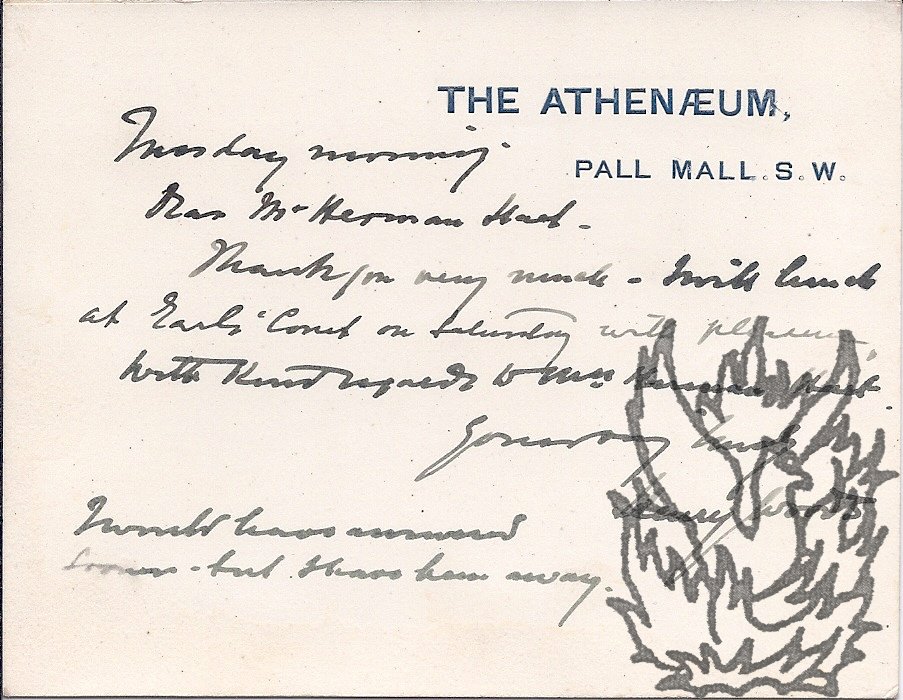 THE ATHENÆUM,
PALL MALL. S. W.
Tuesday morning.
Dear Mr Herman Hart.
Thank you very much - I will lunch
at Earl's Court on Saturday with pleasure.
With Kind regards to Mrs Herman Hart
Yours very truly
Henry
I would have answered
sooner - but I have been away.